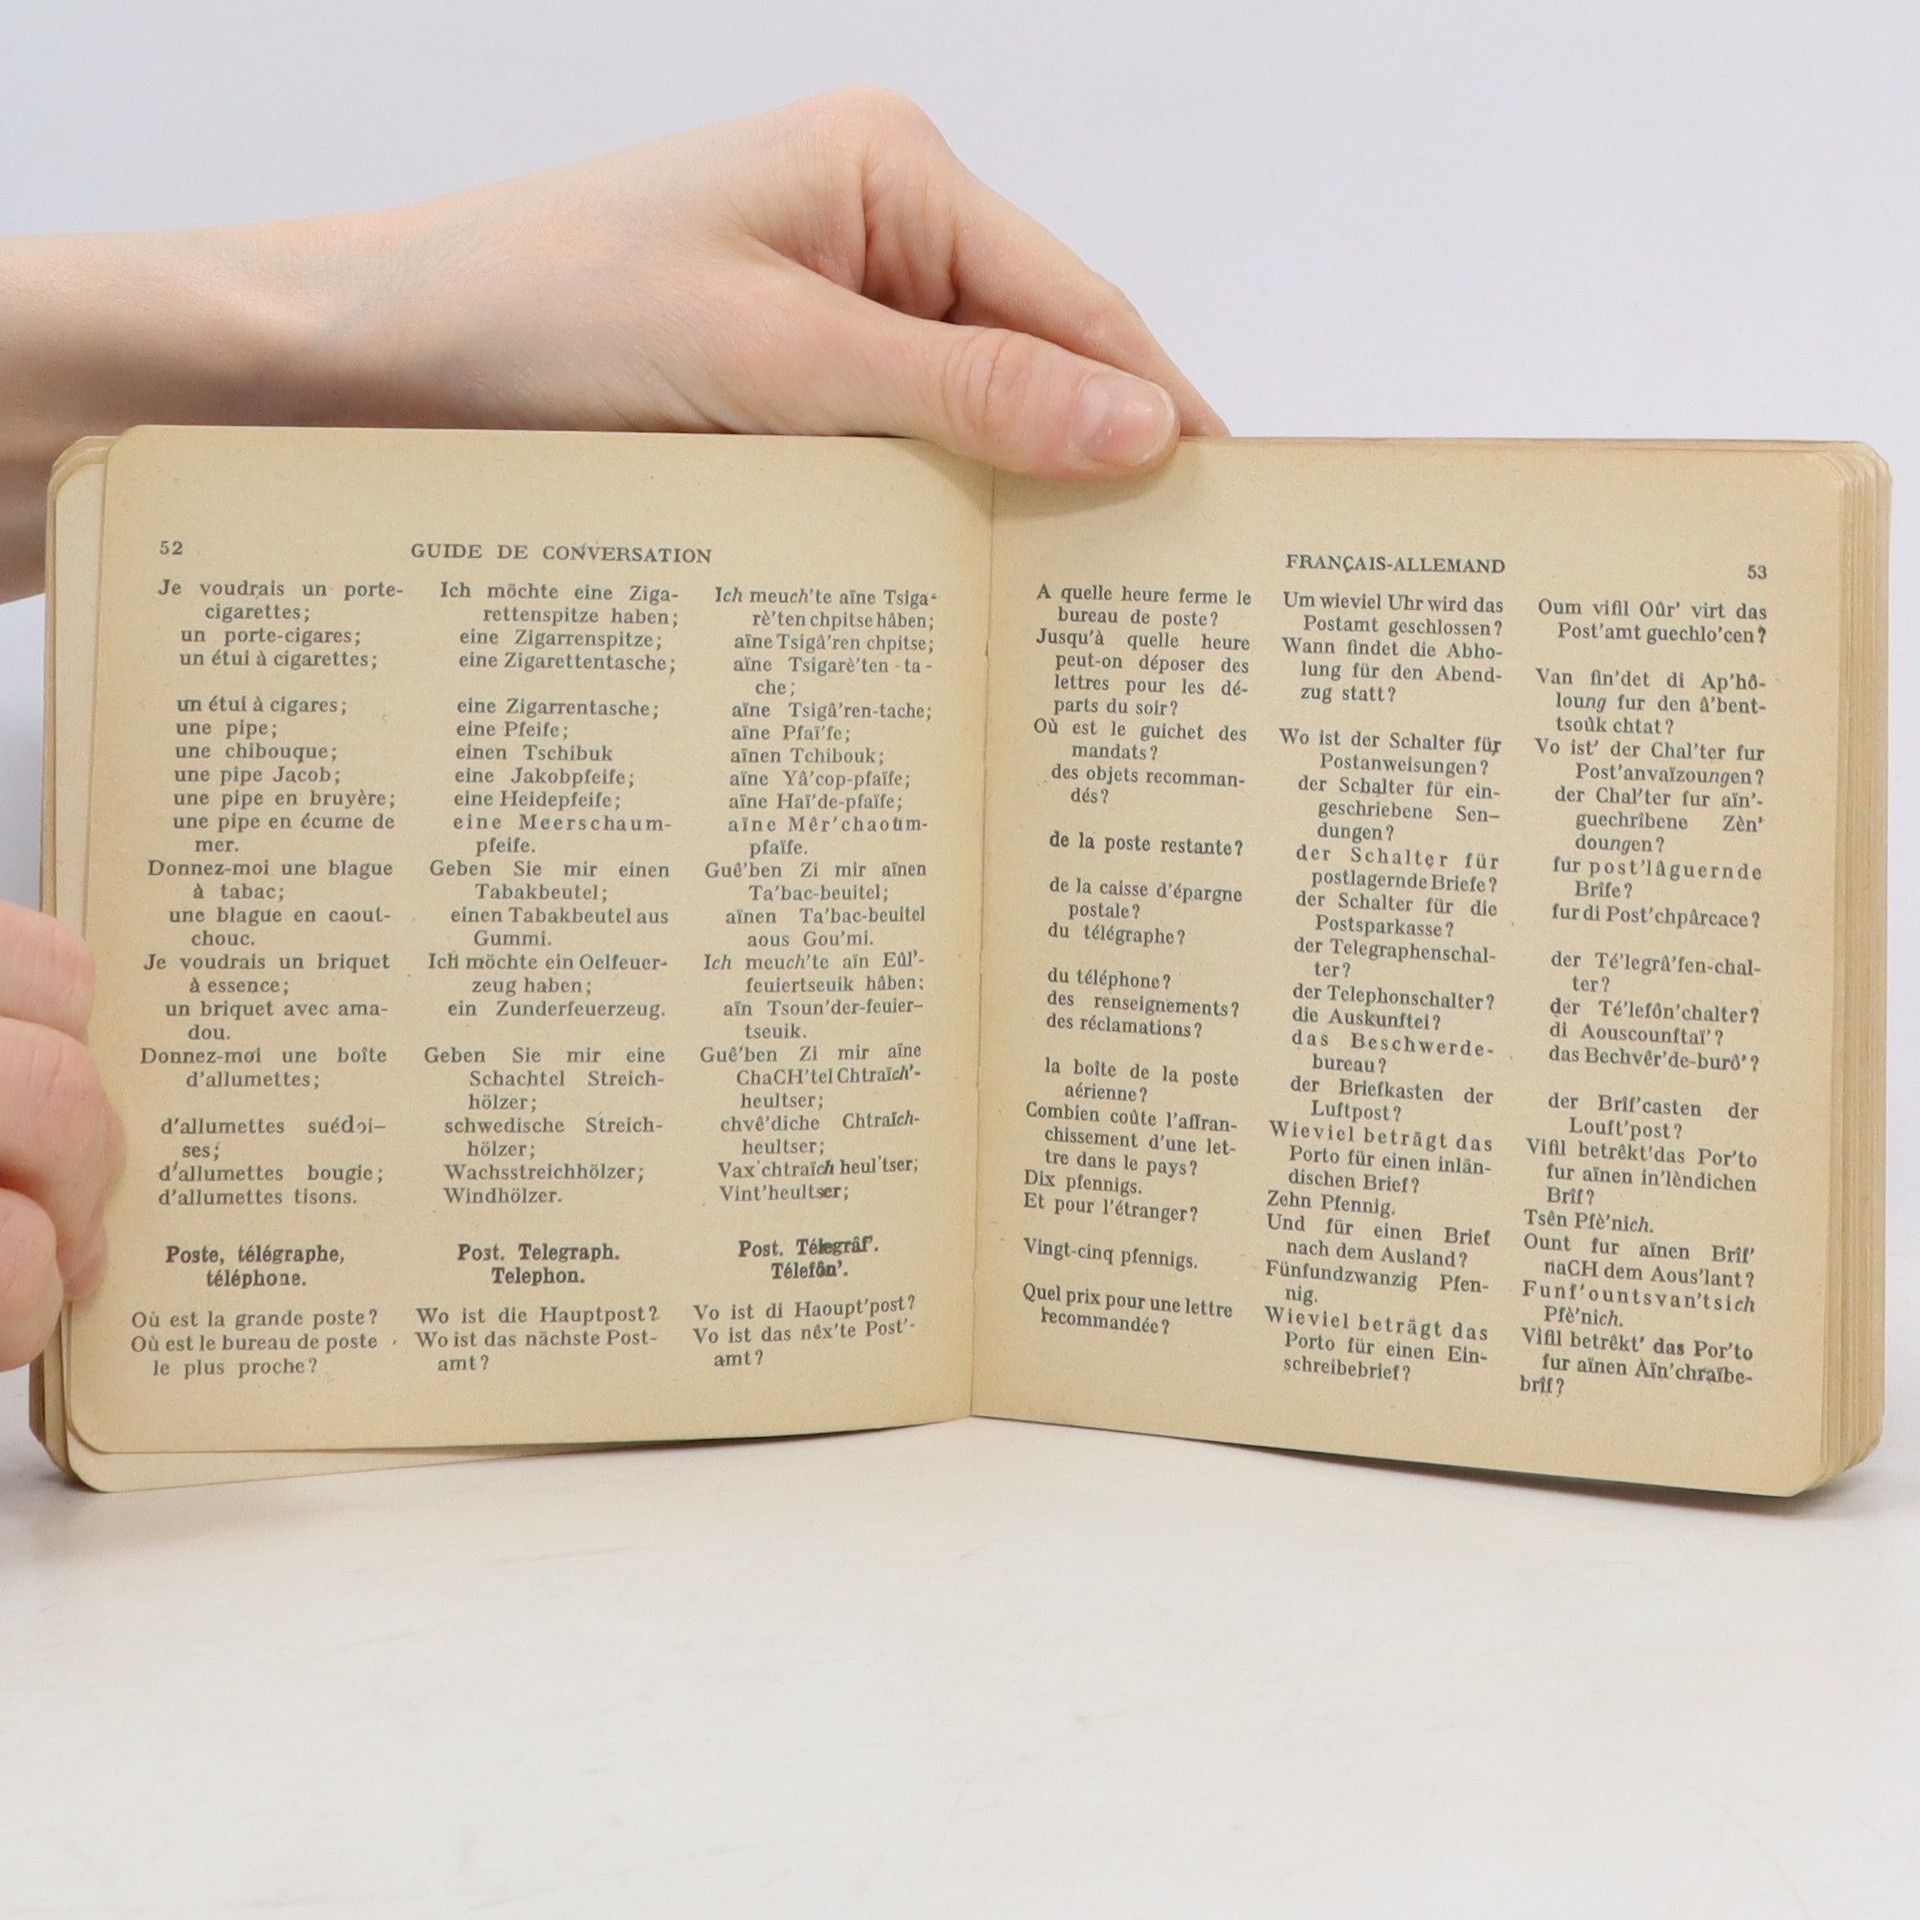 52
GUIDE DE CONVERSATION
Je voudrais un porte-
cigarettes;
un porte-cigares;
un étui à cigarettes;
un étui à cigares;
une pipe;
une chibouque;
une pipe Jacob;
une pipe en bruyère;
une pipe en écume de
mer.
Donnez-moi une blague
à tabac;
une blague en caout-
chouc.
Je voudrais un briquet
à essence;
un briquet avec ama-
dou.
Donnez-moi une boîte
d'allumettes;
d'allumettes suédoi-
ses;
d'allumettes bougie;
d'allumettes tisons.
Poste, télégraphe,
téléphone.
Où est la grande poste?
Où est le bureau de poste
le plus proche?
Ich möchte eine Ziga-
rettenspitze haben;
eine Zigarrenspitze;
eine Zigarettentasche;
eine Zigarrentasche;
eine Pfeife;
einen Tschibuk
eine Jakobpfeife;
eine Heidepfeife;
eine Meerschaum-
pfeife.
Geben Sie mir einen
Tabakbeutel;
einen Tabakbeutel aus
Gummi.
Ich möchte ein Oelfeuer-
zeug haben;
ein Zunderfeuerzeug.
Geben Sie mir eine
Schachtel Streich-
hölzer;
schwedische Streich-
hölzer;
Wachsstreichhölzer;
Windhölzer.
Post. Telegraph.
Telephon.
Wo ist die Hauptpost?
Wo ist das nächste Post-
amt?
Ich meuch'te aïne Tsiga-
rè'ten chpitse hâben;
aïne Tsigâ'ren chpitse;
aïne Tsigarè'ten-ta-
che;
aïne Tsigâ'ren-tache;
aïne Pfaï'fe;
aïnen Tchibouk;
aïne Yâ'cop-pfaïfe;
aïne Haï'de-pfaïfe;
aïne Mêr'chaoum-
pfaïfe.
Guê'ben Zi mir aïnen
Ta'bac-beuitel;
aïnen Ta'bac-beuitel
aous Gou'mi.
Ich meuch'te aïn Eûl'-
feuiertseuik hâben;
aïn Tsoun'der-feuier-
tseuik.
Guê'ben Zi mir aïne
ChaCH'tel Chtraïch'-
heultser;
chvê'diche Chtraïch-
heultser;
Vax'chtraïch heul'tser;
Vint'heultser;
Post. Télegrâf'.
Télefôn'.
Vo ist di Haoupt'post?
Vo ist das nêx'te Post'-
amt?
FRANÇAIS-ALLEMAND
53
A quelle heure ferme le
bureau de poste?
Jusqu'à quelle heure
peut-on déposer des
lettres pour les dé-
parts du soir?
Où est le guichet des
mandats?
des objets recomman-
dés?
de la poste restante?
de la caisse d'épargne
postale?
du télégraphe?
du téléphone?
des renseignements?
des réclamations?
la boîte de la poste
aérienne?
Combien coûte l'affran-
chissement d'une let-
tre dans le pays?
Dix pfennigs.
Et pour l'étranger?
Vingt-cinq pfennigs.
Quel prix pour une lettre
recommandée?
Um wieviel Uhr wird das
Postamt geschlossen?
Wann findet die Abho-
lung für den Abend-
zug statt?
Wo ist der Schalter für
Postanweisungen?
der Schalter für ein-
geschriebene Sen-
dungen?
der Schalter für
postlagernde Briefe?
der Schalter für die
Postsparkasse?
der Telegraphenschal-
ter?
der Telephonschalter?
die Auskunftei?
das Beschwerde-
bureau?
der Briefkasten der
Luftpost?
Wieviel beträgt das
Porto für einen inlän-
dischen Brief?
Zehn Pfennig.
Und für einen Brief
nach dem Ausland?
Fünfundzwanzig Pfen-
nig.
Wieviel beträgt das
Porto für einen Ein-
schreibebrief?
Oum vifil Oûr' virt das
Post'amt guechlo'cen?
Van fin'det di Ap'hô-
loung fur den â'bent-
tsoûk chtat?
Vo ist' der Chal'ter fur
Post'anvaïzoungen?
der Chal'ter fur aïn'-
guechrîbene Zèn'
doungen?
fur post'lâguernde
Brîfe?
fur di Post'chpârcace?
der Té'legrâ'fen-chal-
ter?
der Té'lefôn'chalter?
di Aouscounftaï'?
das Bechvêr'de-burô'?
der Brîf'casten der
Louft'post?
Vifil betrêkt'das Por'to
fur aïnen in'lèndichen
Brîf?
Tsên Pfè'nich.
Ount fur aïnen Brîf'
naCH dem Aous'lant?
Funf'ountsvan'tsich
Pfè'nich.
Vifil betrêkt' das Por'to
fur aïnen Aïn'chraïbe-
brîf?